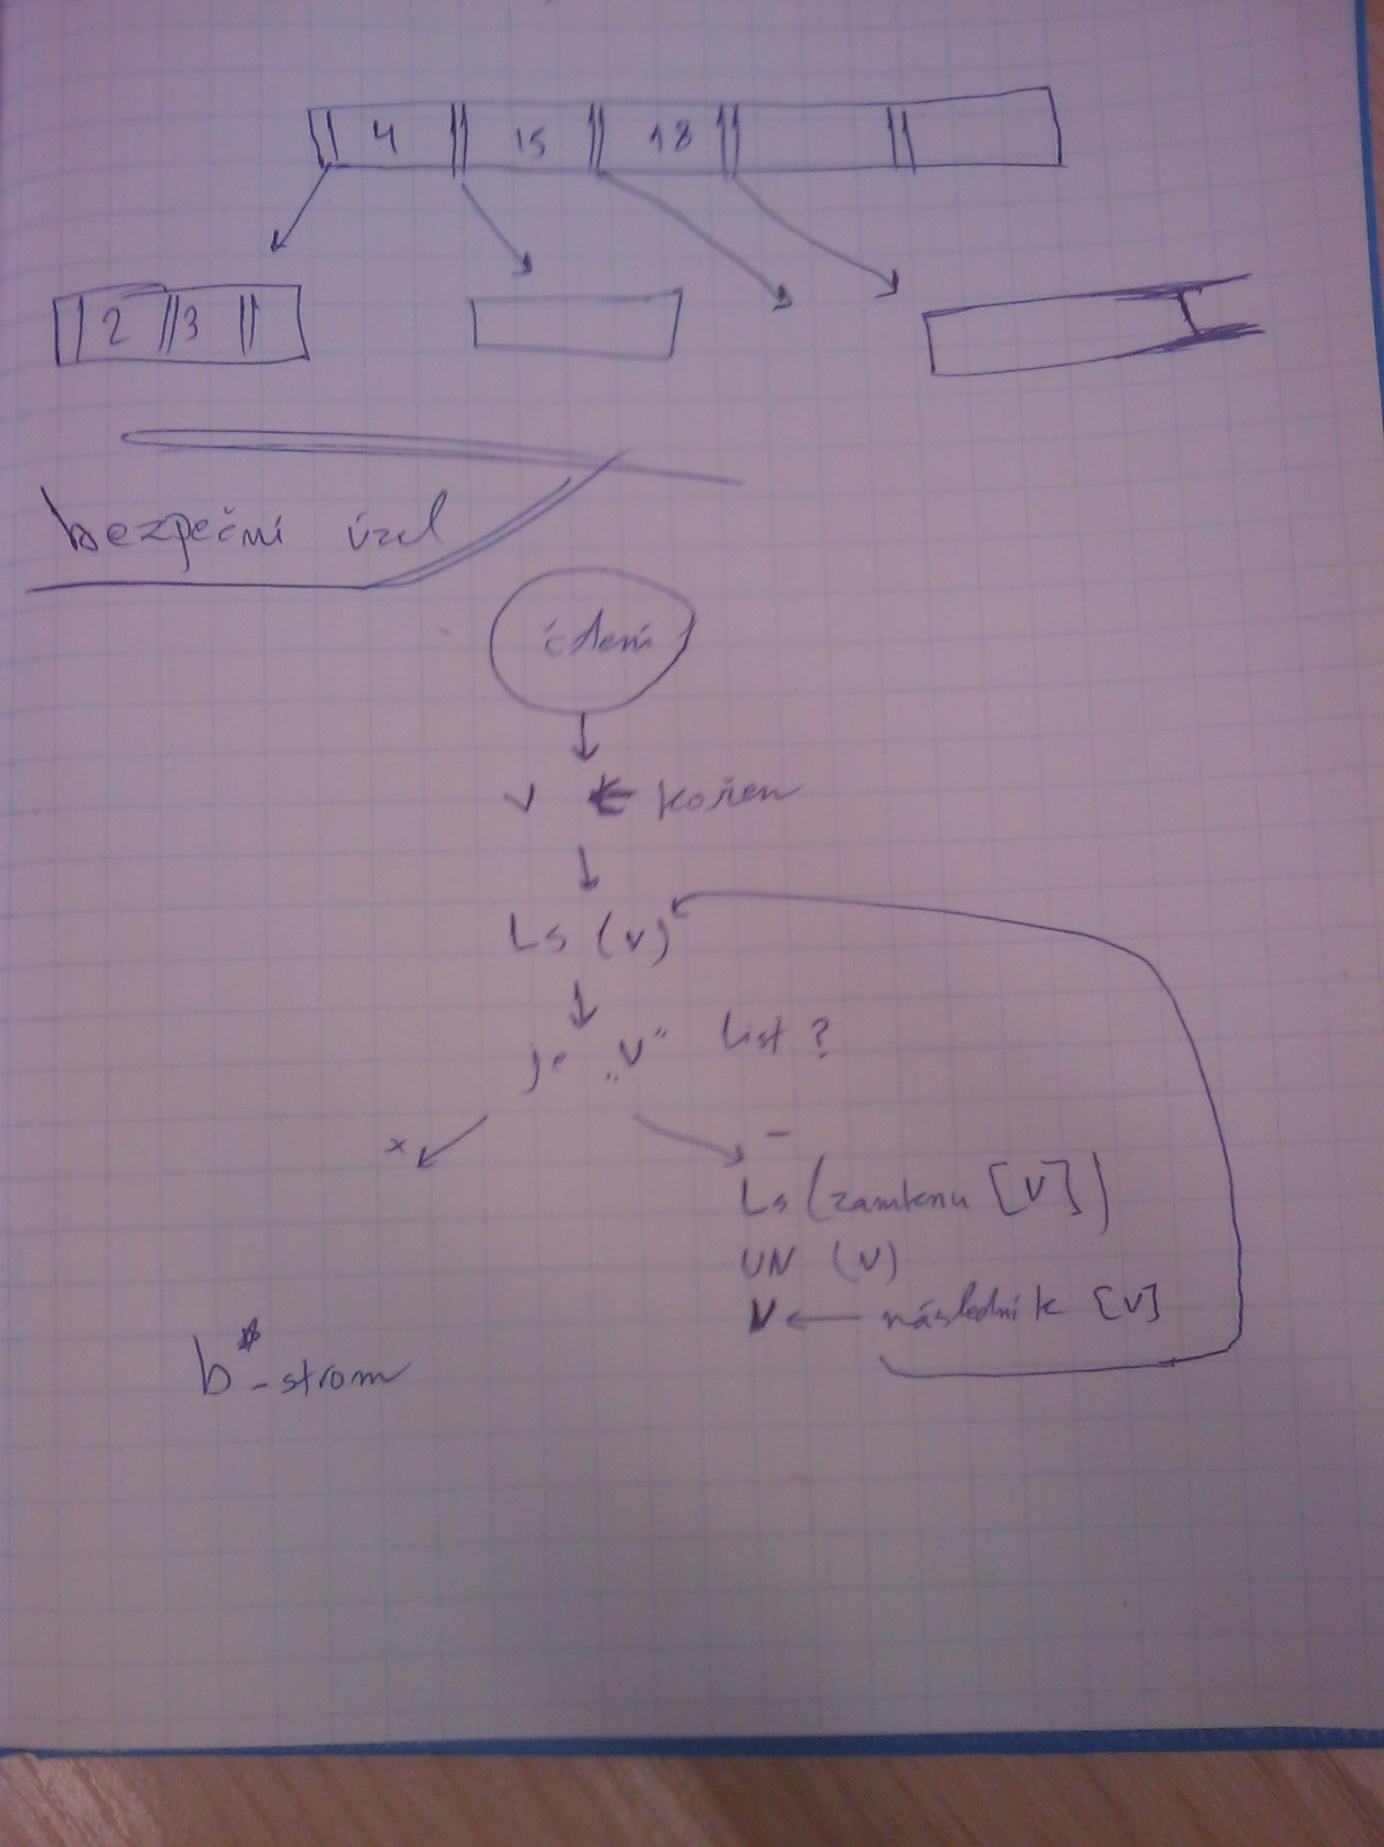 4 15 18
2 3
bezpeční úzel
čtení
V ← kořen
Ls (v)
je „V“ List?
x -
Ls (zamknu [V])
UN (V)
V ← následník [V]
b*-strom